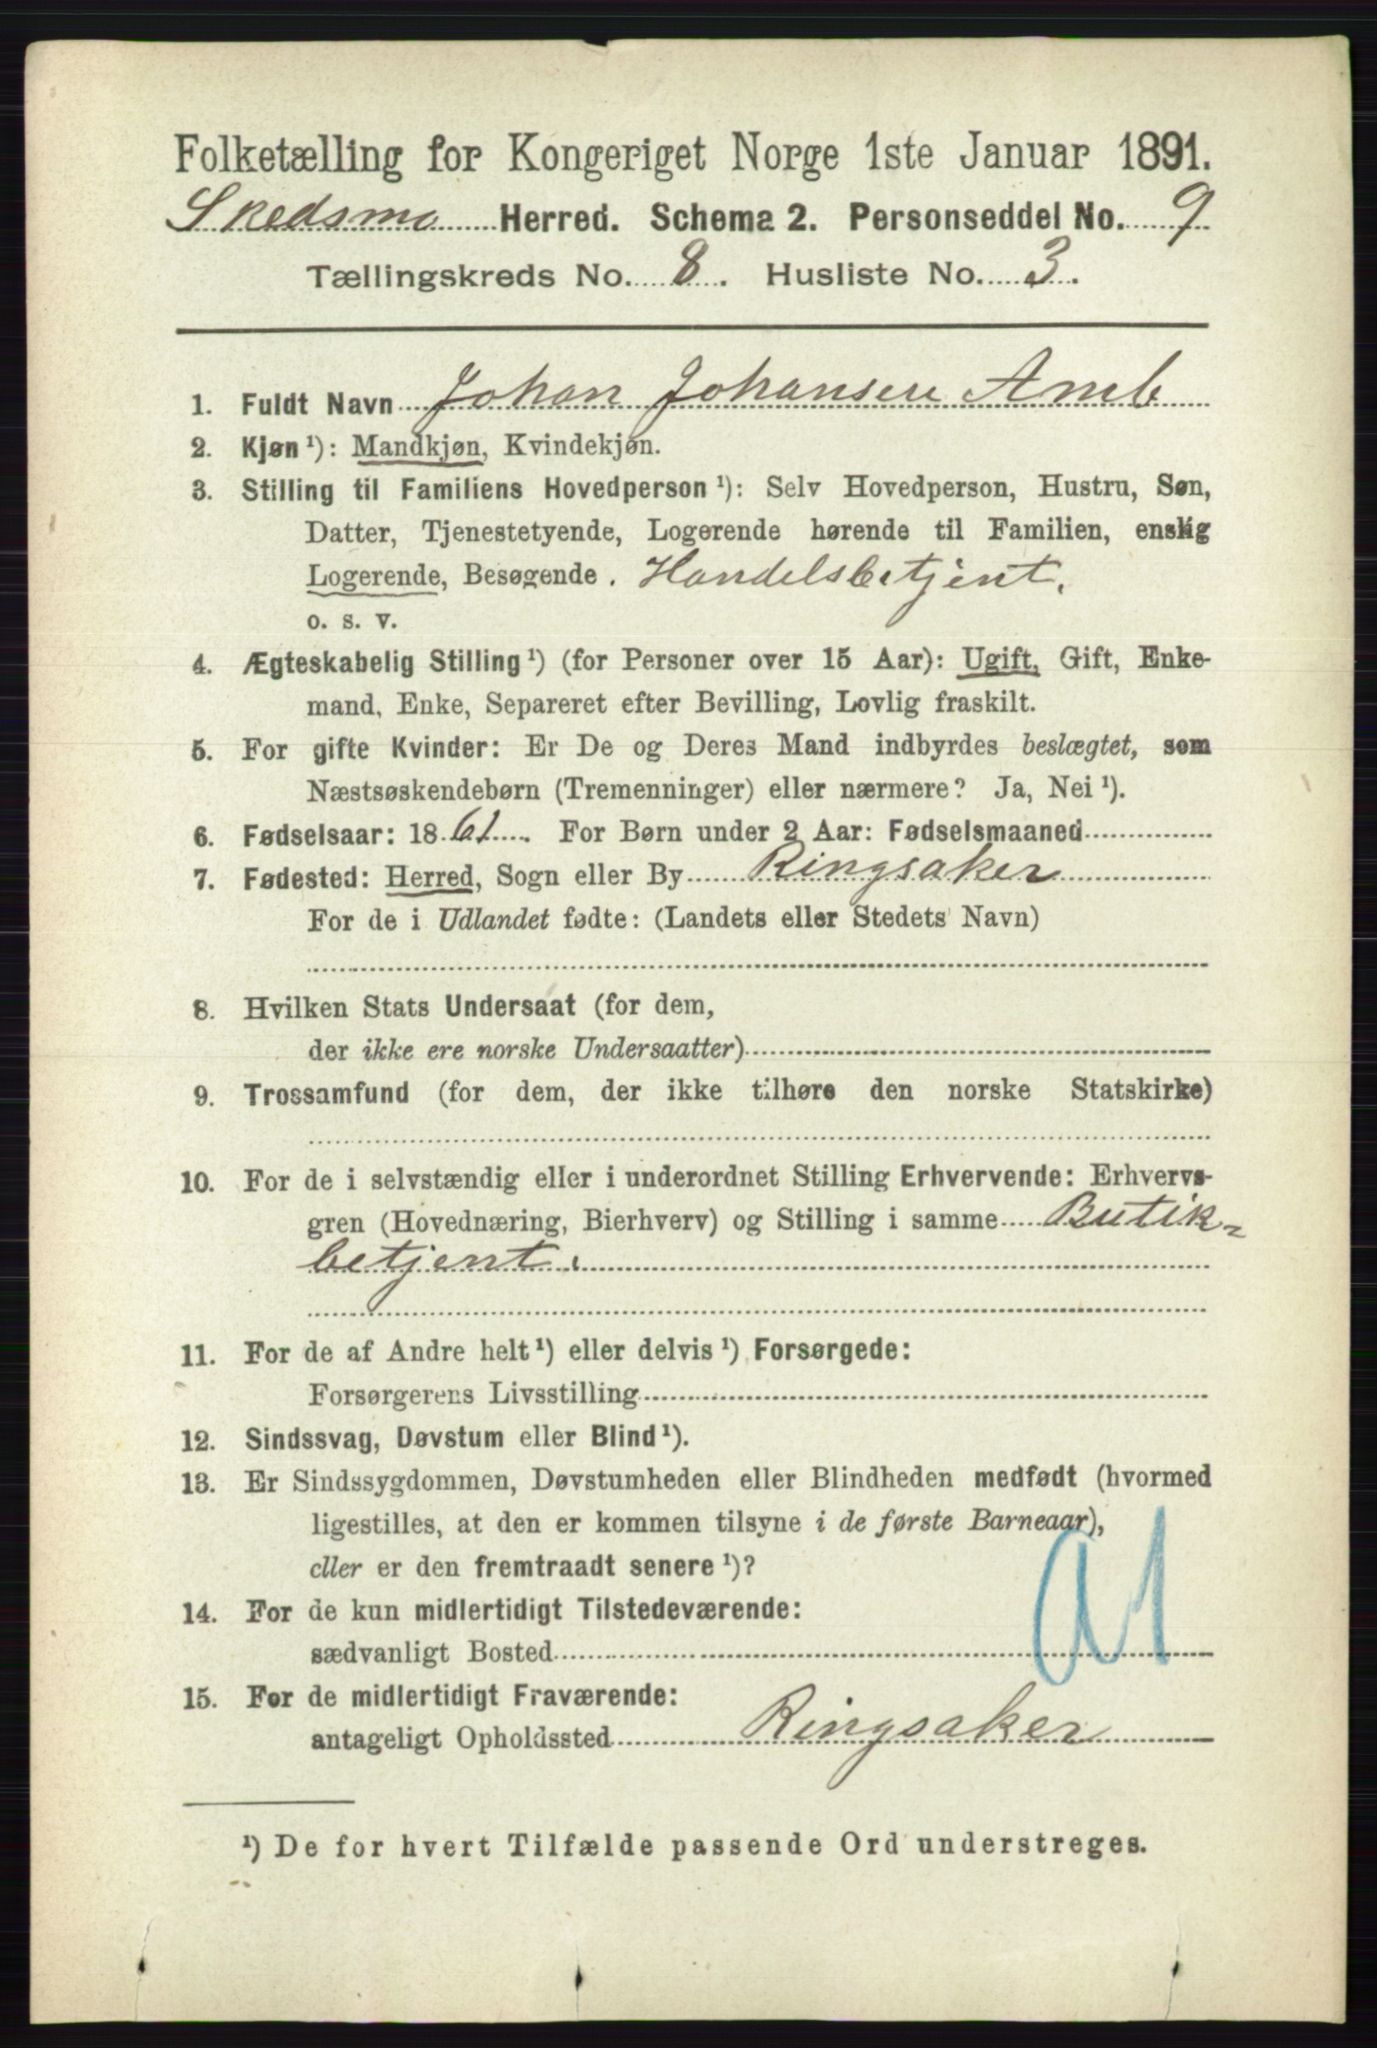 Folketælling for Kongeriget Norge 1ste Januar 1891.
Skedsmo Herred. Schema 2. Personseddel No. 9
Tællingskreds No. 8. Husliste No. 3.
1. Fuldt Navn Johan Johansen
2. Kjøn ¹): Mandkjøn, Kvindekjøn.
3. Stilling til Familiens Hovedperson ¹): Selv Hovedperson, Hustru, Søn,
Datter, Tjenestetyende, Logerende hørende til Familien, enslig
Logerende, Besøgende. Handelsbetjent.
o. s. v.
4. Ægteskabelig Stilling ¹) (for Personer over 15 Aar): Ugift, Gift, Enke-
mand, Enke, Separeret efter Bevilling, Lovlig fraskilt.
5. For gifte Kvinder: Er De og Deres Mand indbyrdes beslægtet, som
Næstsøskendebørn (Tremenninger) eller nærmere? Ja, Nei ¹).
6. Fødselsaar: 1861. For Børn under 2 Aar: Fødselsmaaned
7. Fødested: Herred, Sogn eller By Ringsaker
For de i Udlandet fødte: (Landets eller Stedets Navn)
8. Hvilken Stats Undersaat (for dem,
der ikke ere norske Undersaatter)
9. Trossamfund (for dem, der ikke tilhøre den norske Statskirke)
10. For de i selvstændig eller i underordnet Stilling Erhvervende: Erhvervs-
gren (Hovednæring, Bierhverv) og Stilling i samme Butik-
betjent.
11. For de af Andre helt ¹) eller delvis ¹) Forsørgede:
Forsørgerens Livsstilling
12. Sindssvag, Døvstum eller Blind ¹).
13. Er Sindssygdommen, Døvstumheden eller Blindheden medfødt (hvormed
ligestilles, at den er kommen tilsyne i de første Barneaar),
eller er den fremtraadt senere ¹)?
14. For de kun midlertidigt Tilstedeværende:
sædvanligt Bosted
15. For de midlertidigt Fraværende:
antageligt Opholdssted Ringsaker
¹) De for hvert Tilfælde passende Ord understreges.